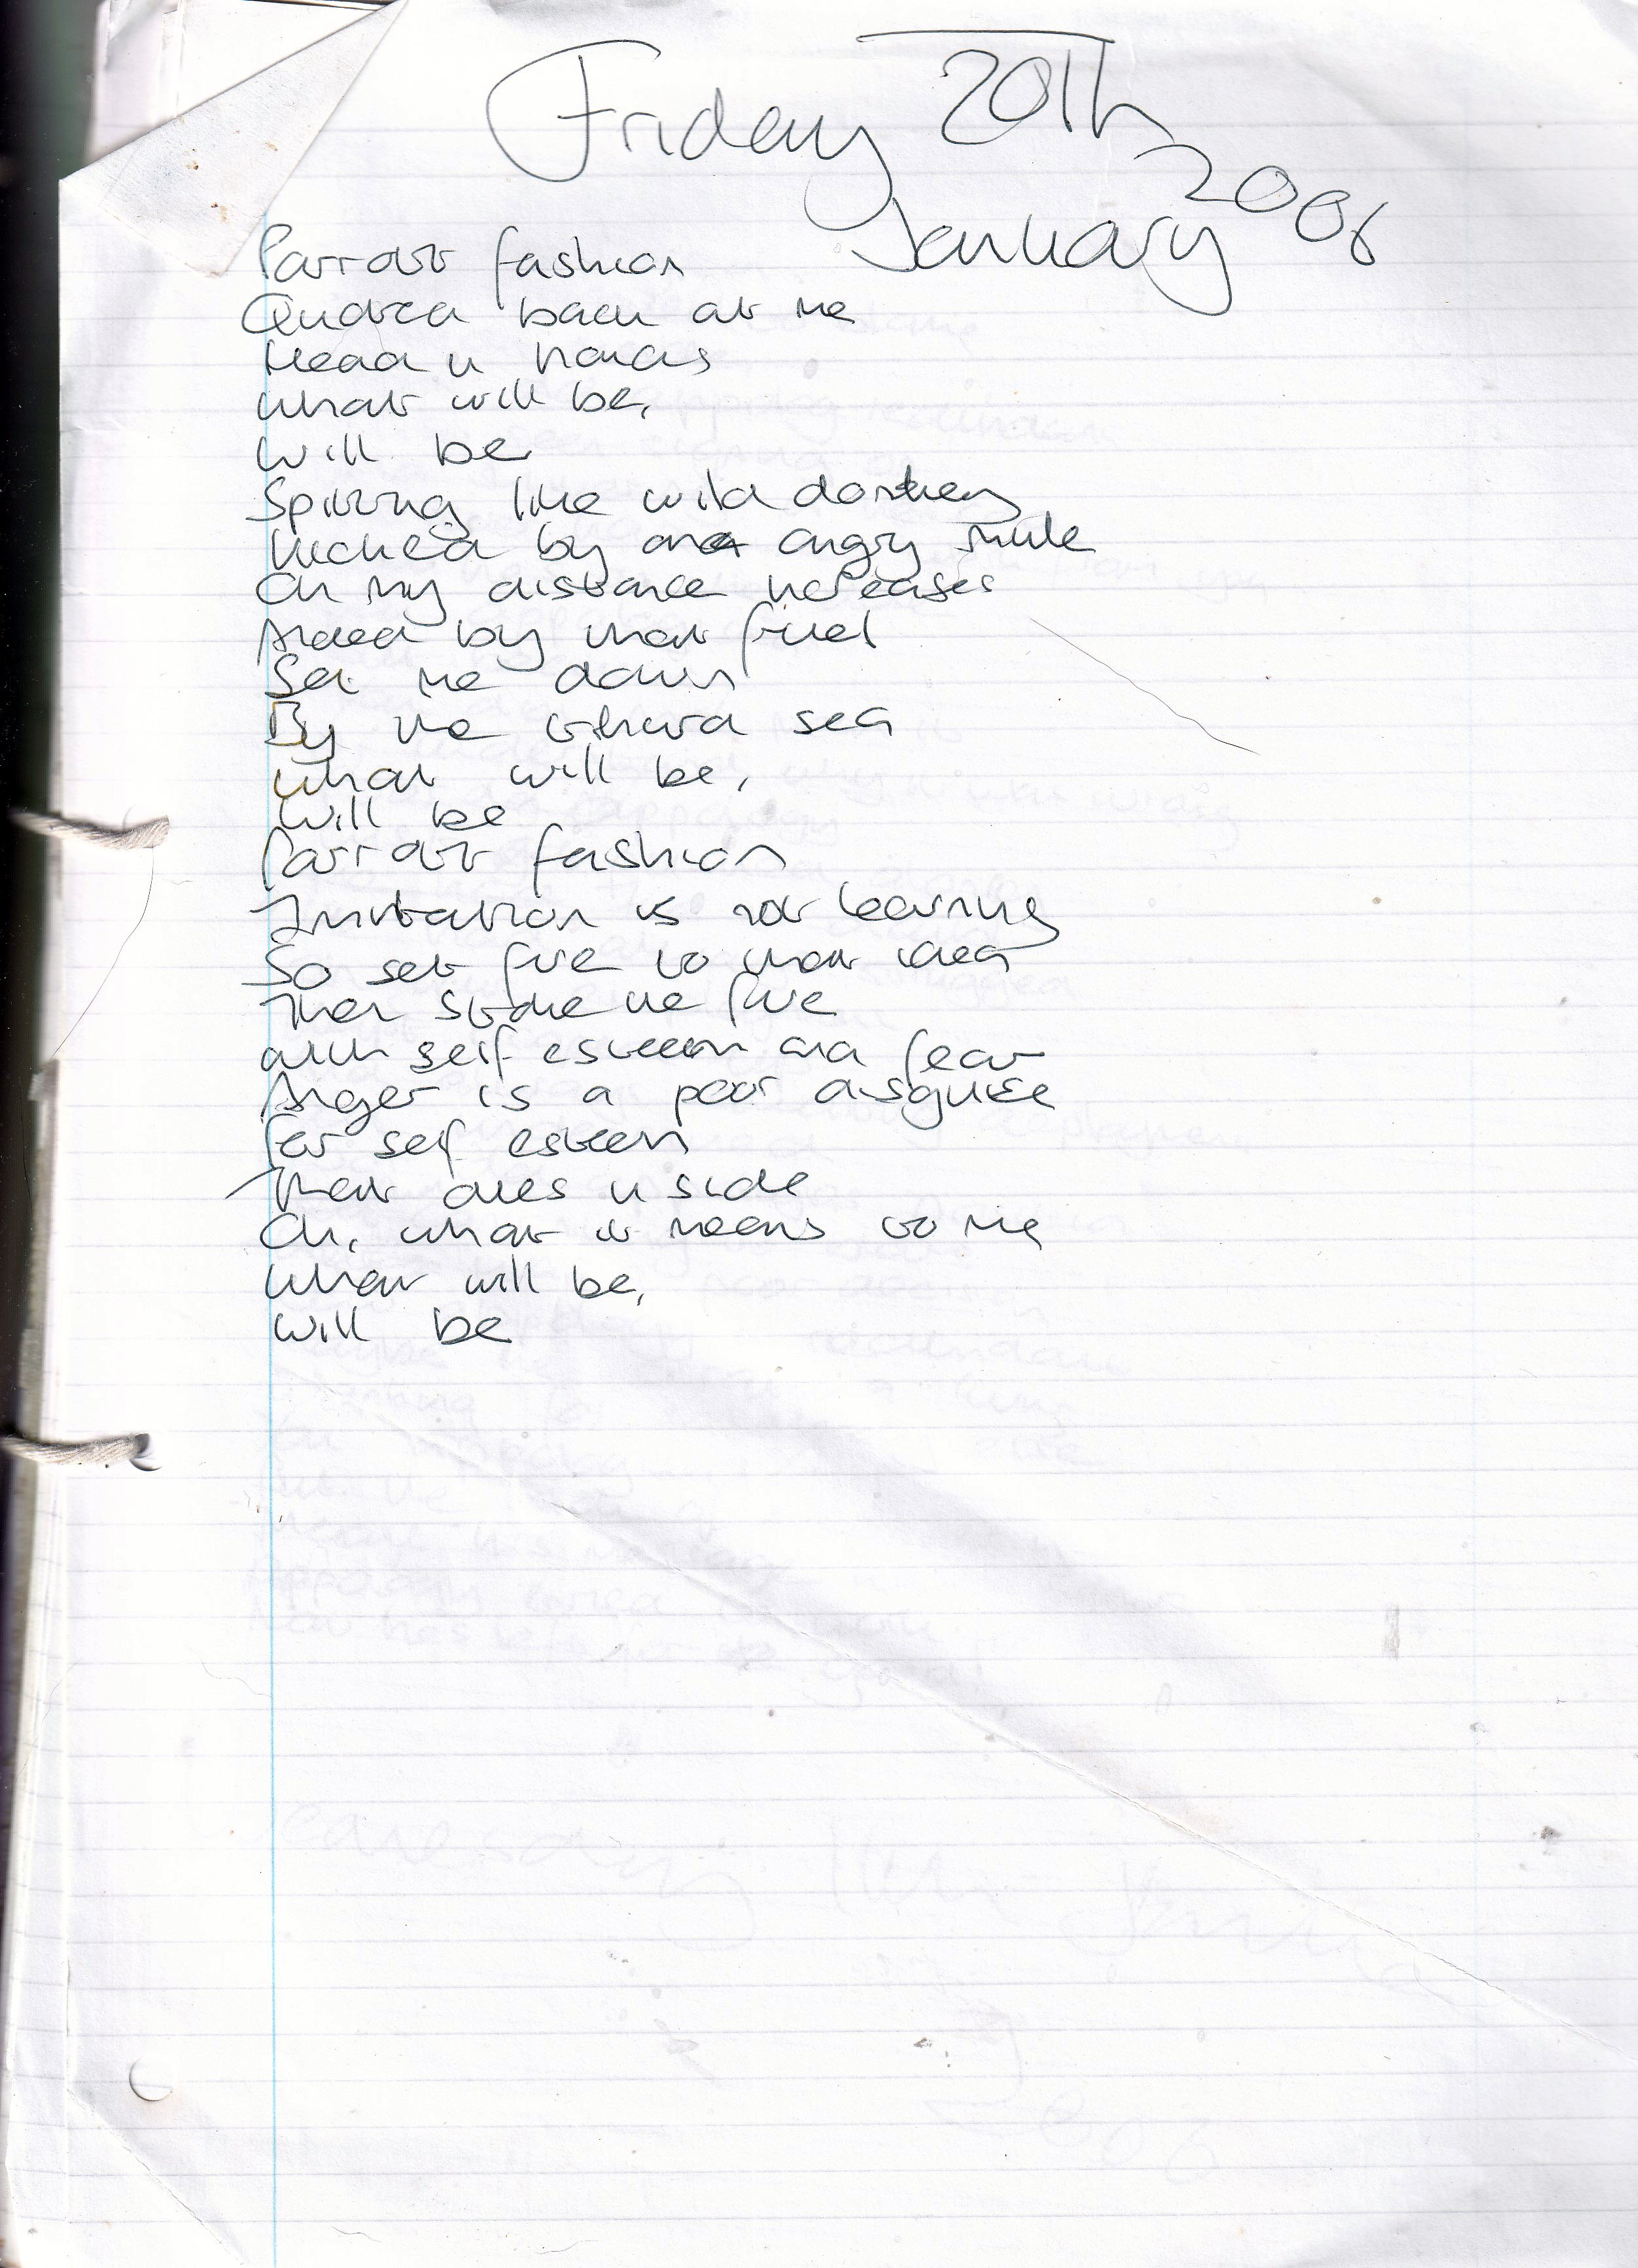 Friday 20th
January 2006
Parrott fashion
Quoted back at me
Head in hands
What will be,
Will be
Spitting like wild donkey
Kicked by an angry mule
Oh my distance increases
Aided by that fuel
Set me down
By the third sea
What will be,
Will be
Parrott fashion
Imitation is not learning
So set fire to that idea
Then stoke the fire
With self esteem and fear
Anger is a poor disguise
For self esteem
That dies inside
Oh, what it means to me
What will be,
Will be